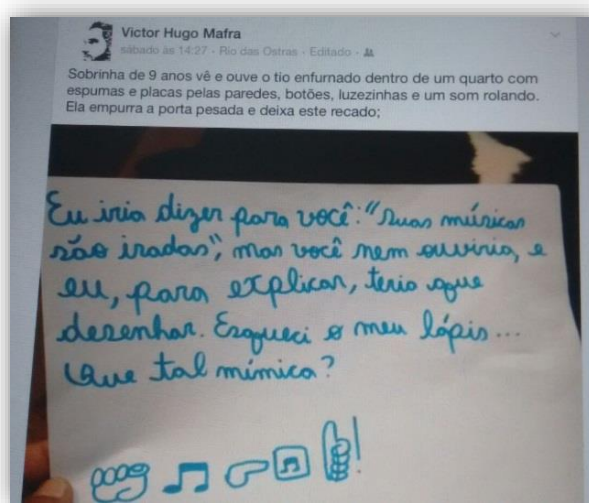 Victor Hugo Mafra
sábado às 14:27 · Rio das Ostras · Editado ·
Sobrinha de 9 anos vê e ouve o tio enfurnado dentro de um quarto com
espumas e placas pelas paredes, botões, luzezinhas e um som rolando.
Ela empurra a porta pesada e deixa este recado;
Eu iria dizer para você: "suas músicas
são iradas", mas você nem ouviria, e
eu, para explicar, teria que
desenhar. Esqueci o meu lápis...
Que tal mímica?
!